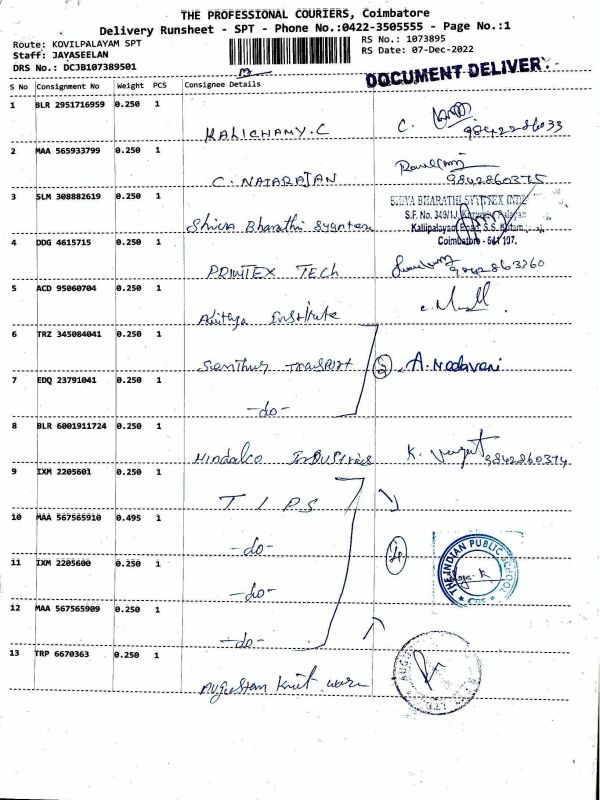 THE PROFESSIONAL COURIERS, Coimbatore
Delivery Runsheet - SPT - Phone No.:0422-3505555 - Page No.:1
Route: KOVILPALAYAM SPT
RS No.: 1073895
Staff: JAYASEELAN
RS Date: 07-Dec-2022
DRS No.: DCJB107389501
DOCUMENT DELIVERY
S No Consignment No Weight PCS Consignee Details
1 BLR 2951716959 0.250 1
KALICHAMY.C C. 9842286033
2 MAA 565933799 0.250 1
C. NATARAJAN 9842860375
3 SLM 308882619 0.250 1
SHIVA BHARATHI SYNTEX INDIA
S.F. No. 349/1J, Palayam
Kallipalayam Road, S.S. Kulam,
Coimbatore - 641 107.
Shiva Bharathi Syntex
4 DDG 4615715 0.250 1
PRIMTEX TECH 9842863360
5 ACD 95060704 0.250 1
Adithya Institute
6 TRZ 345084041 0.250 1
Senthur Transport 2 A. Nadavani
7 EDQ 23791041 0.250 1
-do-
8 BLR 6001911724 0.250 1
Hindalco Industries K. 9842860374
9 IXM 2205601 0.250 1
TIPS
10 MAA 567565910 0.495 1
-do- 4
THE INDIAN PUBLIC SCHOOL
11 IXM 2205600 0.250 1
-do-
12 MAA 567565909 0.250 1
-do-
13 TRP 6670363 0.250 1
Augusten Knit wear